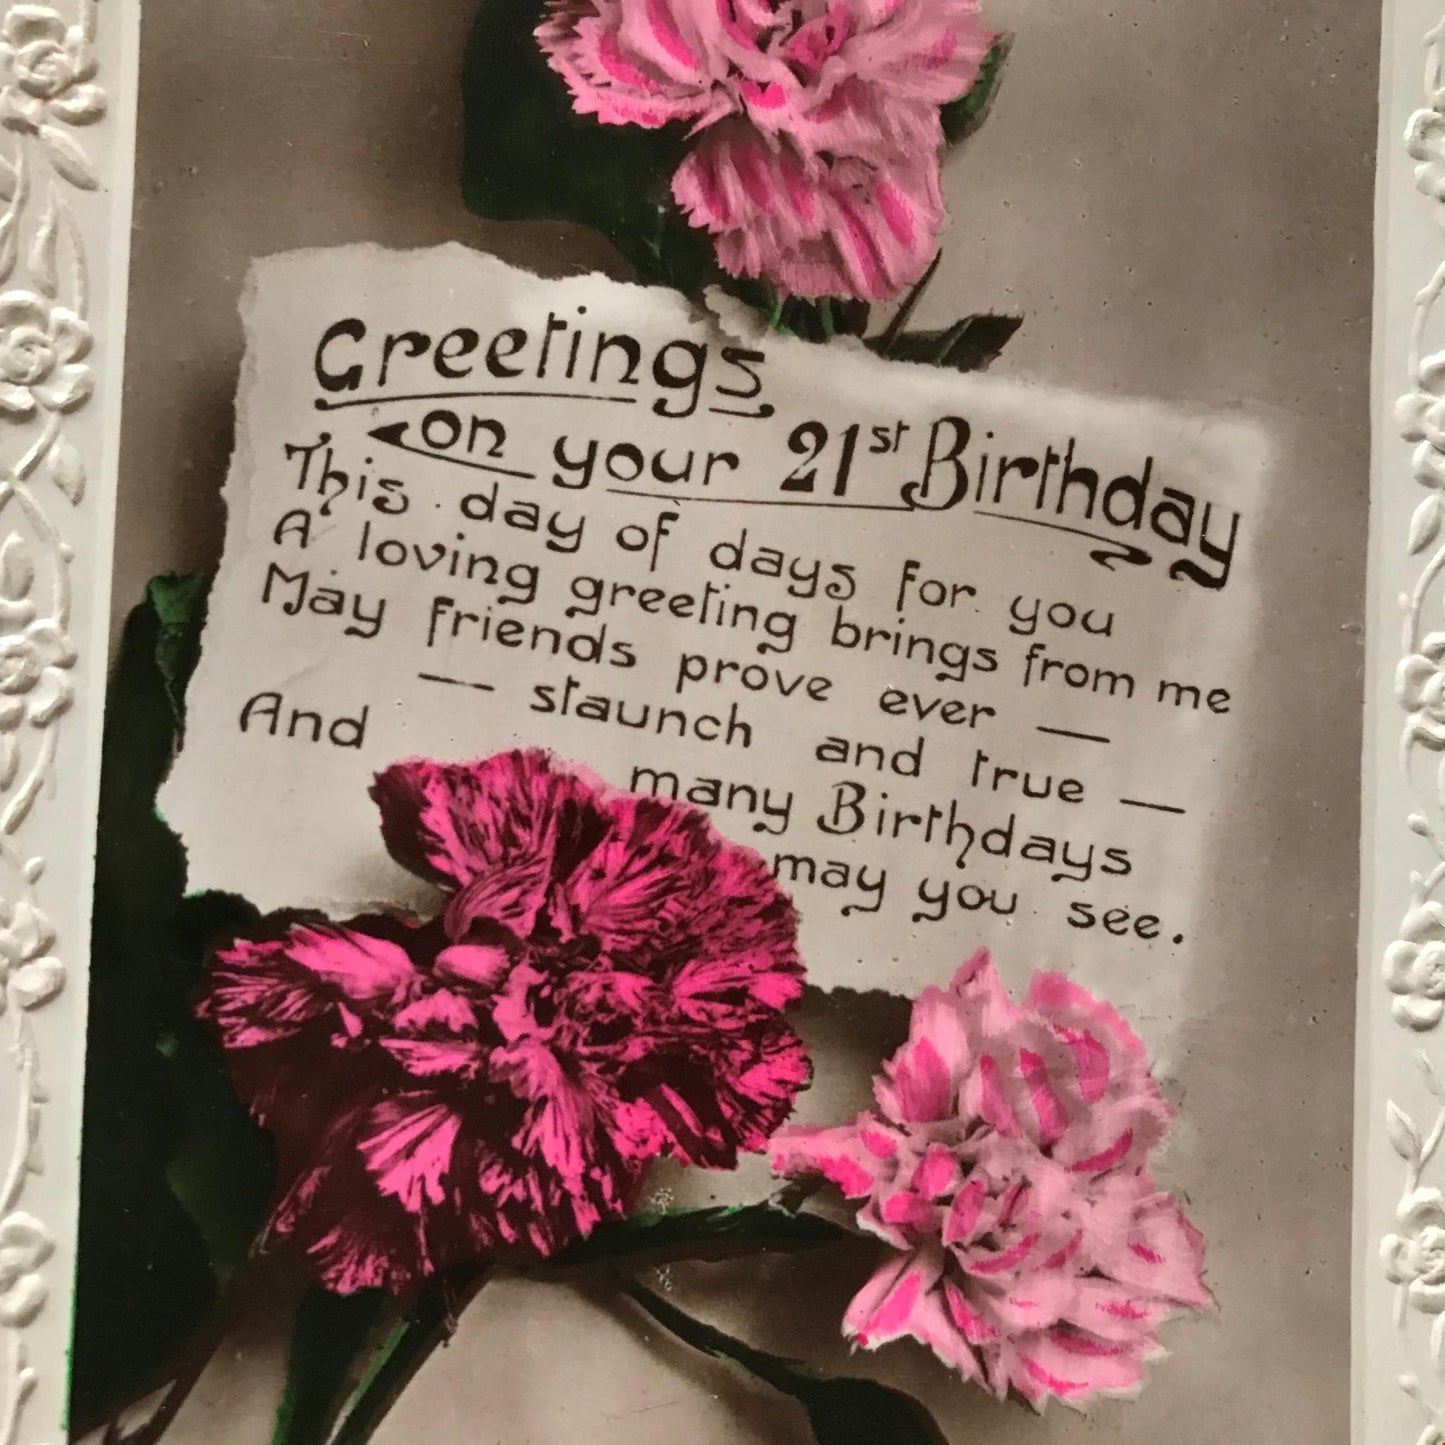 Greetings
on your 21st Birthday
This day of days for you
A loving greeting brings from me
May friends prove ever —
— staunch and true —
And many Birthdays
may you see.